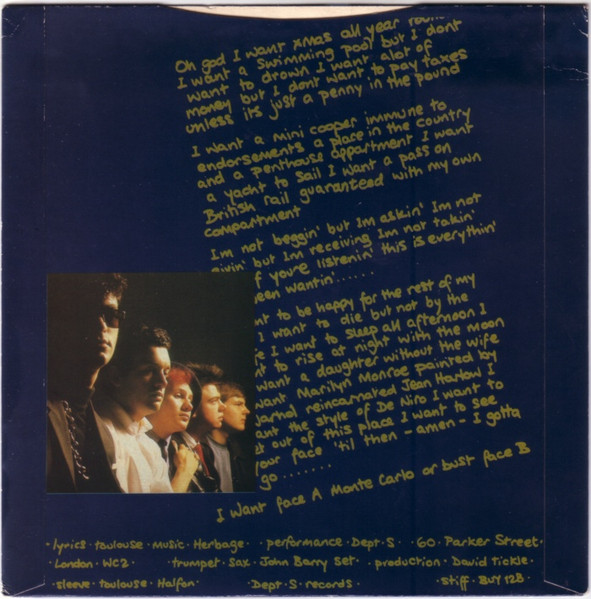 Oh god I want xmas all year round
I want a swimming pool but I dont
want to drown I want alot of
money but I dont want to pay taxes
unless its just a penny in the pound
I want a mini cooper immune to
endorsements a place in the country
and a penthouse appartment I want
a yacht to sail I want a pass on
British rail guaranteed with my own
compartment
Im not beggin' but Im askin' Im not
givin' but Im receiving Im not takin'
if youre listenin' this is everythin'
been wantin'......
to be happy for the rest of my
I want to die but not by the
I want to sleep all afternoon I
to rise at night with the moon
want a daughter without the wife
want Marilyn Monroe painted by
reincarnated Jean Harlow I
want the style of De Niro I want to
out of this place I want to see
your face 'til then - amen - I gotta
go .......
I Want face A Monte Carlo or bust face B
·lyrics·toulouse·music·Herbage· ·performance·Dept·S· ·60·Parker Street·
·London·WC2· ·trumpet·sax·John Barry Set· ·production·David Tickle·
·sleeve·toulouse·Halfon· ·Dept·S·records· ·stiff·BUY 128·